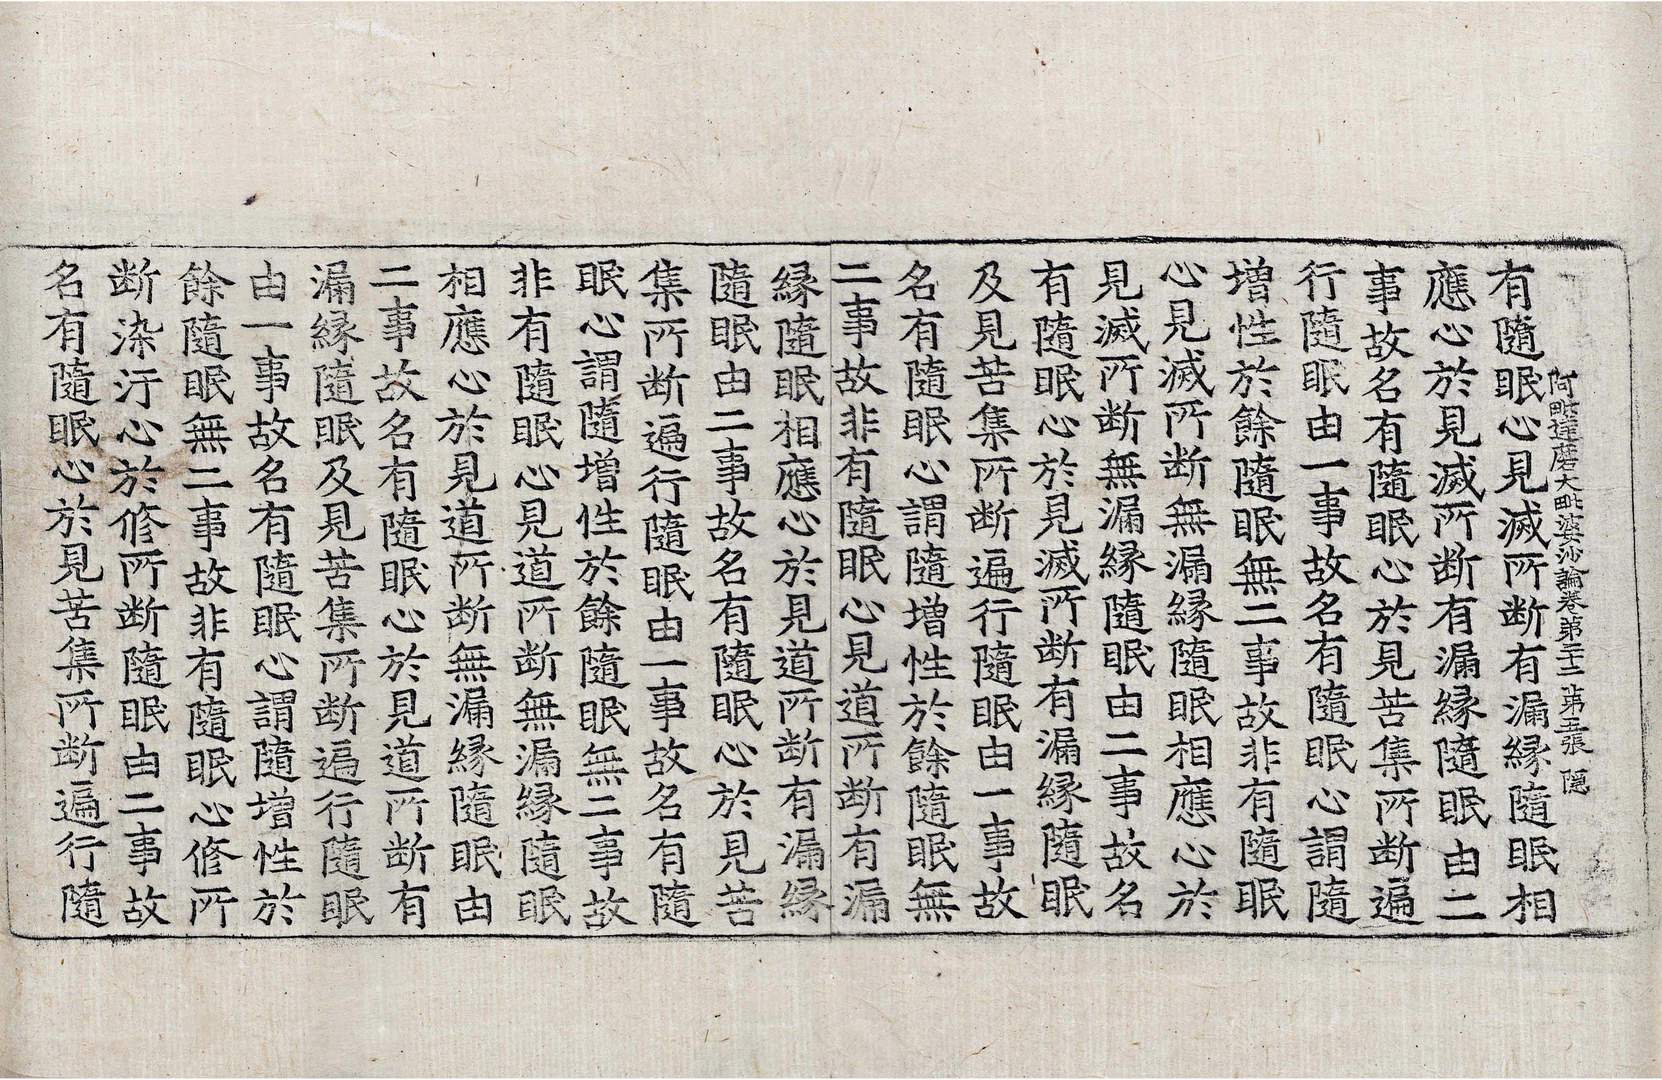 阿毗達磨大毗婆沙論卷第二十二 第五張 隱
有隨眠心見滅所断有漏縁隨眠相
應心於見滅所断有漏縁隨眠由二
事故名有隨眠心於見苦集所断遍
行隨眠由一事故名有隨眠心謂隨
增性於餘隨眠無二事故非有隨眠
心見滅所断無漏縁隨眠相應心於
見滅所断無漏縁隨眠由二事故名
有隨眠心於見滅所断有漏縁隨眠
及見苦集所断遍行隨眠由一事故
名有隨眠心謂隨增性於餘隨眠無
二事故非有隨眠心見道所断有漏
縁隨眠相應心於見道所断有漏縁
隨眠由二事故名有隨眠心於見苦
集所断遍行隨眠由一事故名有隨
眠心謂隨增性於餘隨眠無二事故
非有隨眠心見道所断無漏縁隨眠
相應心於見道所断無漏縁隨眠由
二事故名有隨眠心於見道所断有
漏縁隨眠及見苦集所断遍行隨眠
由一事故名有隨眠心謂隨增性於
餘隨眠無二事故非有隨眠心修所
断染汙心於修所断隨眠由二事故
名有隨眠心於見苦集所断遍行隨